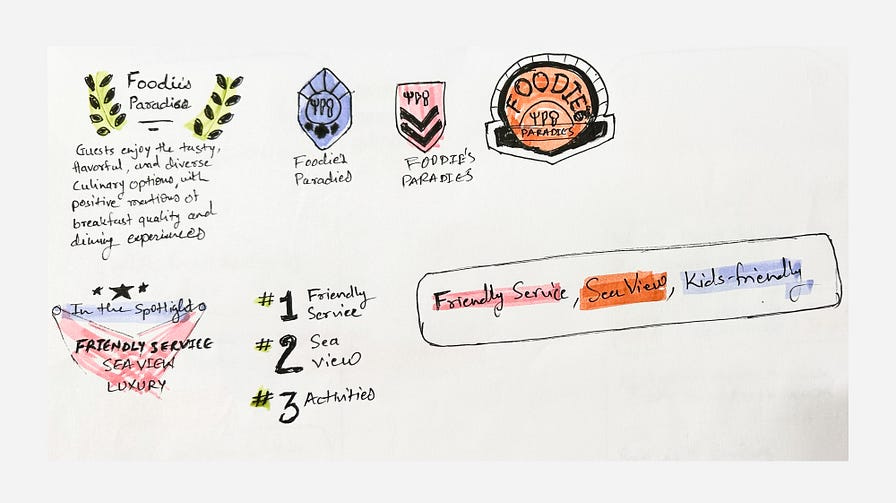 Foodie's
Paradise
Guests enjoy the tasty,
flavorful, and diverse
Culinary options, with
positive mentions of
breakfast quality and
dining experiences
Foodie's
Paradies
FOODIE'S
PARADIES
FOODIES
PARADIES
In the Spotlight
FRIENDLY SERVICE
SEA VIEW
LUXURY
#1 Friendly
Service
#2 Sea
View
#3 Activities
Friendly Service, Sea View, Kids-friendly